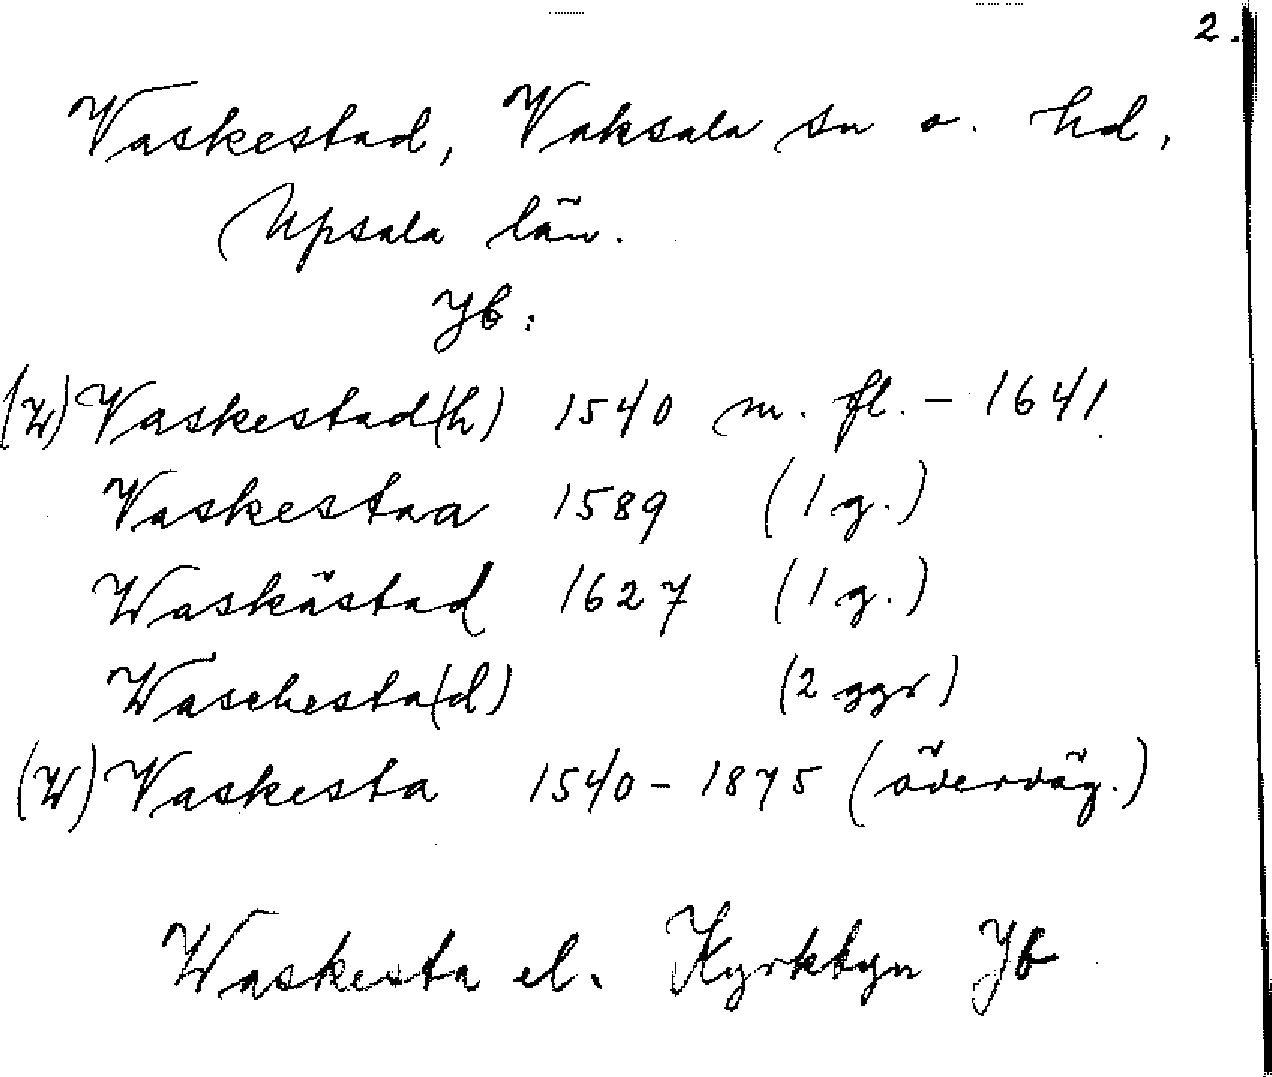 2.
Vaskestad, Vaksala sn o. hd,
Upsala län.
Jb:
(W) Vaskestad(h) 1540 m. fl. - 1641
Vaskestaa 1589 (1 g.)
Waskästad 1627 (1 g.)
Waschesta(d) (2 ggr)
(W) Vaskesta 1540 - 1875 (överväg.)
Waskesta el. Kyrkbyn Jb